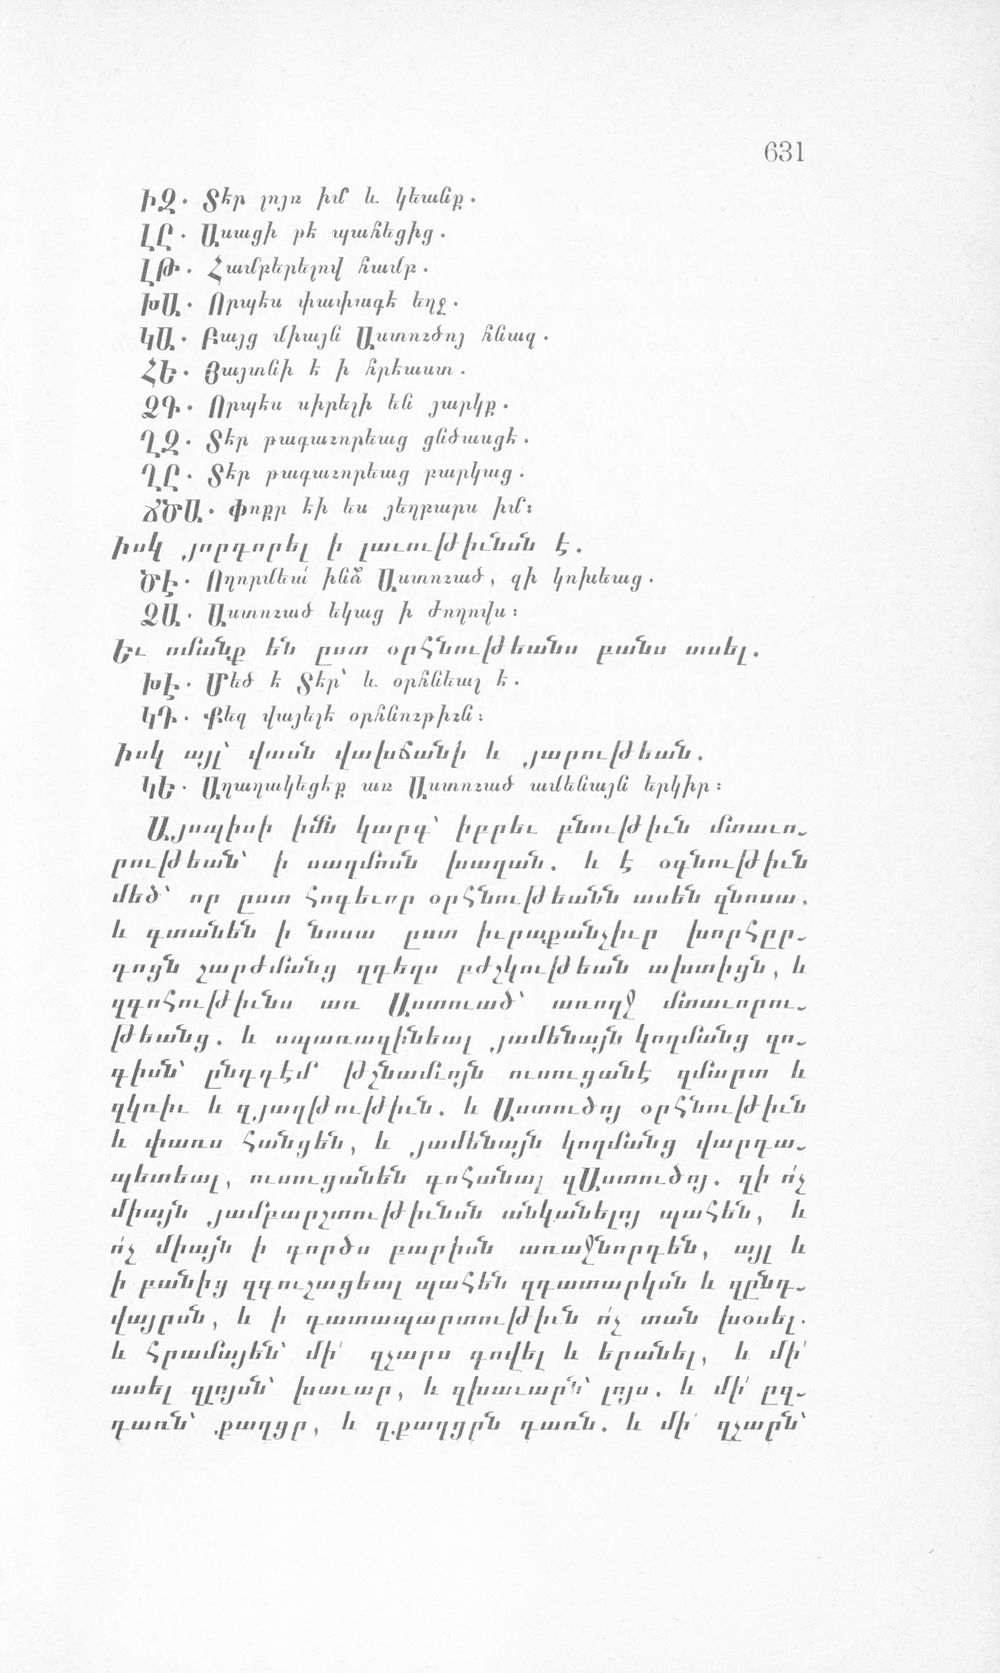 631
ԻԶ. Տեր լոյս իմ և կեանք.
ԼԸ. Ասացի թե պահեցից.
ԼԹ. Համբերելով համբ.
ԽԱ. Որպես փափագե եղջ.
ԿԱ. Բայց միայն Աստուծոյ հնազ.
ՀԵ. Յայտնի է ի հրեաստ.
ՁԳ. Որպես սիրելի են յարկք.
ՂԶ. Տեր թագաւորեաց ցնծասցե.
ՂԸ. Տեր թագաւորեաց բարկաց.
ՃԾԱ. Փոքր էի ես յեղբարս իմ։
Իսկ յորդորել ի լաւութիւնսն է.
ԾԷ. Ողորմեա՛ ինձ Աստուած, զի կոխեաց.
ՁԱ. Աստուած եկաց ի ժողովս։
Եւ ոմանք են ըստ օրհնութեանս բանս ասել.
ԽԷ. Մեծ է Տեր՝ և օրհնեալ է.
ԿԴ. Քեզ վայելե օրհնութիւն։
Իսկ այլ՝ վասն վախճանի և յարութեան.
ԿԵ. Աղաղակեցեք առ Աստուած ամենայն երկիր։
Այսպիսի իմն կարգ՝ իբրեւ բնութիւն մտաւո֊
րութեան՝ ի սաղմոսն խազան. և է օգնութիւն
մեծ՝ որ ըստ հոգեւոր օրհնութեանն ասեն զնոսա.
և գտանեն ի նոսա ըստ իւրաքանչիւր խորհըր֊
դոցն շարժմանց զդեղս բժշկութեան ախտիցն, և
զգոհութիւնս առ Աստուած՝ առողջ մտաւորու֊
թեանց. և սպառազինեալ յամենայն կողմանց զո֊
գիսն՝ ընդդէմ թշնամւոյն ուսուցանէ զմարտ և
զկռիւ և զյաղթութիւն. և Աստուծոյ օրհնութիւն
և փառս հանցեն, և յամենայն կողմանց վարդա֊
պետեալ, ուսուցանեն գոհանալ զԱստուծոյ. զի ո՛չ
միայն յամբարշտութիւնսն անկանելոյ պահեն, և
ո՛չ միայն ի գործս բարիսն առաջնորդեն, այլ և
ի բանից զգուշացեալ պահեն զդատարկսն և զընդ֊
վայրսն, և ի դատապարտութիւն ո՛չ տան խօսել.
և հրամայեն՝ մի՛ զչարս գովել և երանել, և մի՛
ասել զլոյսն՝ խաւար, և զխաւարն՝ լոյս. և մի՛ ըզ֊
դառն՝ քաղցր, և զքաղցրն դառն. և մի՛ զչարն՝